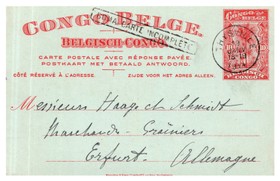 CONGO BELGE.
CARTE INCOMPLÈTE
BELGISCH CONGO.
CARTE POSTALE AVEC RÉPONSE PAYÉE.
POSTKAART MET BETAALD ANTWOORD.
CÔTÉ RÉSERVÉ À L'ADRESSE. ZIJDE VOOR HET ADRES ALLEEN.
Messieurs Haage et Schmidt
Marchands-Grainiers
Erfurt. Allemagne